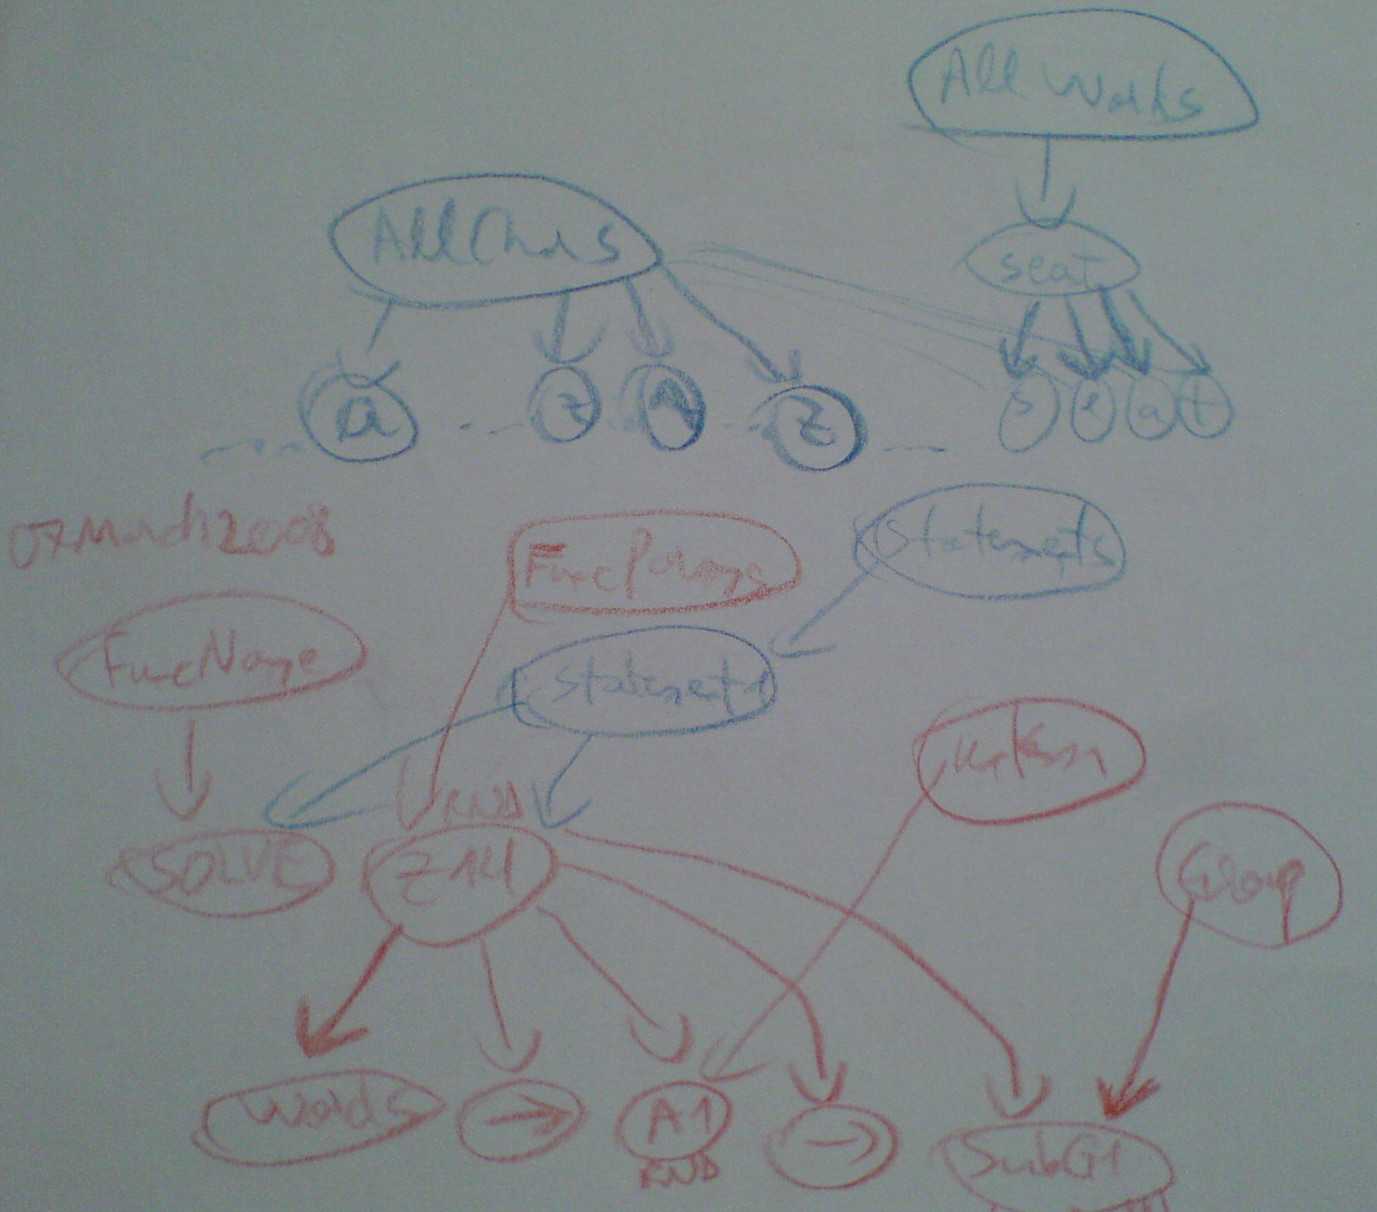 All Words
AllChars
seat
a
z
A
Z
s
e
a
t
07March2008
FuncParams
Statements
FuncName
Statement1
RND
SOLVE
Z14
Group
Words
→
A1
→
SubG1
RND